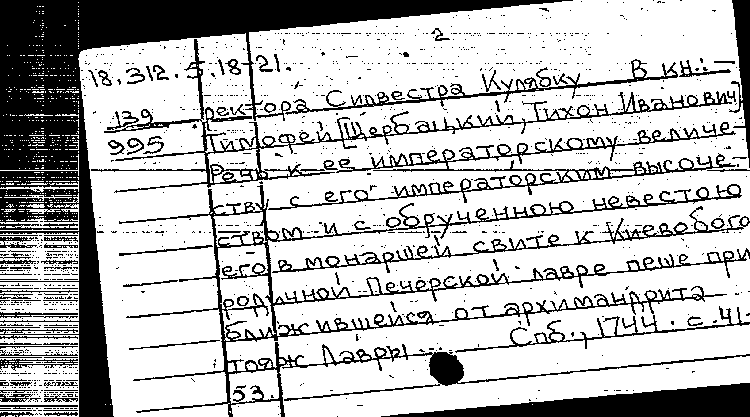 2
18.312.5.18-21.
139
995
ректора Силвестра Кулябку В кн.: —
Тимофей [Щербацкий, Тихон Иванович]
Речь к ее императорскому величе-
ству с его императорским высоче-
ством и с обрученною невестою
его в монаршей свите к Киевобого
родичной Печерской лавре пеше при
ближившейся от архимандрита
тояж Лавры ... Спб., 1744. с. 41-
53.